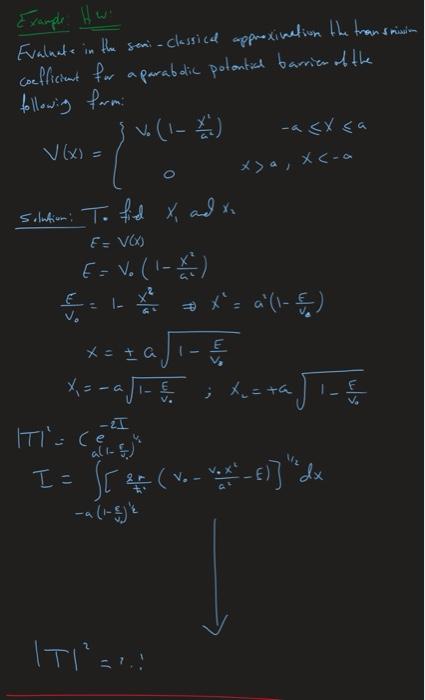 Example: H.W:
Evaluate in the semi-classical approximation the transmission
coefficient for a parabolic potential barrier of the
following form:
V(x) = { V₀ (1 - x²/a²)   -a ≤ x ≤ a
0   x > a, x < -a
Solution: To find x₁ and x₂
E = V(x)
E = V₀ (1 - x²/a²)
E/V₀ = 1 - x²/a² ⇒ x² = a²(1 - E/V₀)
x = ± a √(1 - E/V₀)
x₁ = -a √(1 - E/V₀) ; x₂ = +a √(1 - E/V₀)
|T|² = C e^(-2I)
I = ∫_{-a(1 - E/V₀)^½}^{a(1 - E/V₀)^½} [2m/ħ² (V₀ - V₀x²/a² - E)]^{1/2} dx
|T|² = ?.!